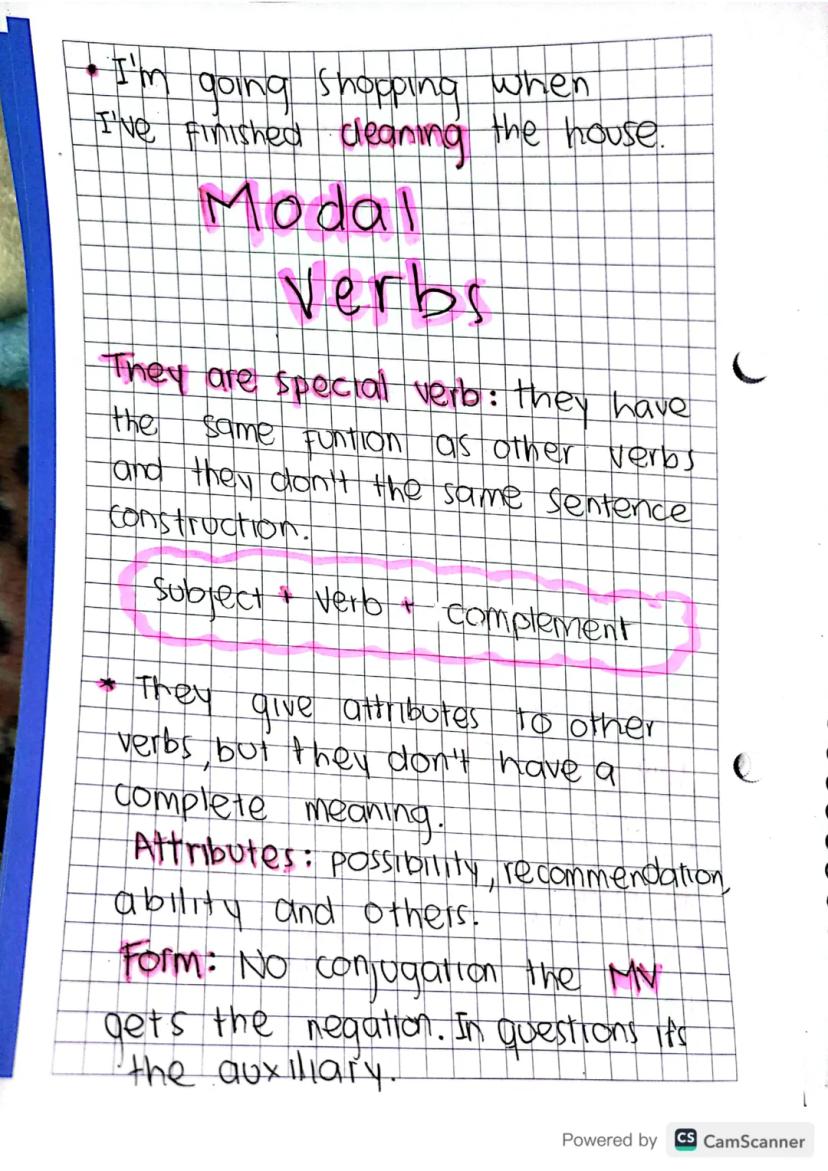 • I'm going shopping when
I've finished cleaning the house.
Modal
verbs
They are special verb: they have
the same funtion as other verbs
and they don't the same sentence
construction.
subject + verb + complement
* They give attributes to other
verbs, but they don't have a
complete meaning.
Attributes: possibility, recommendation,
ability and others.
Form: No conjugation the MV
gets the negation. In questions it's
the auxiliary.
Powered by CS CamScanner